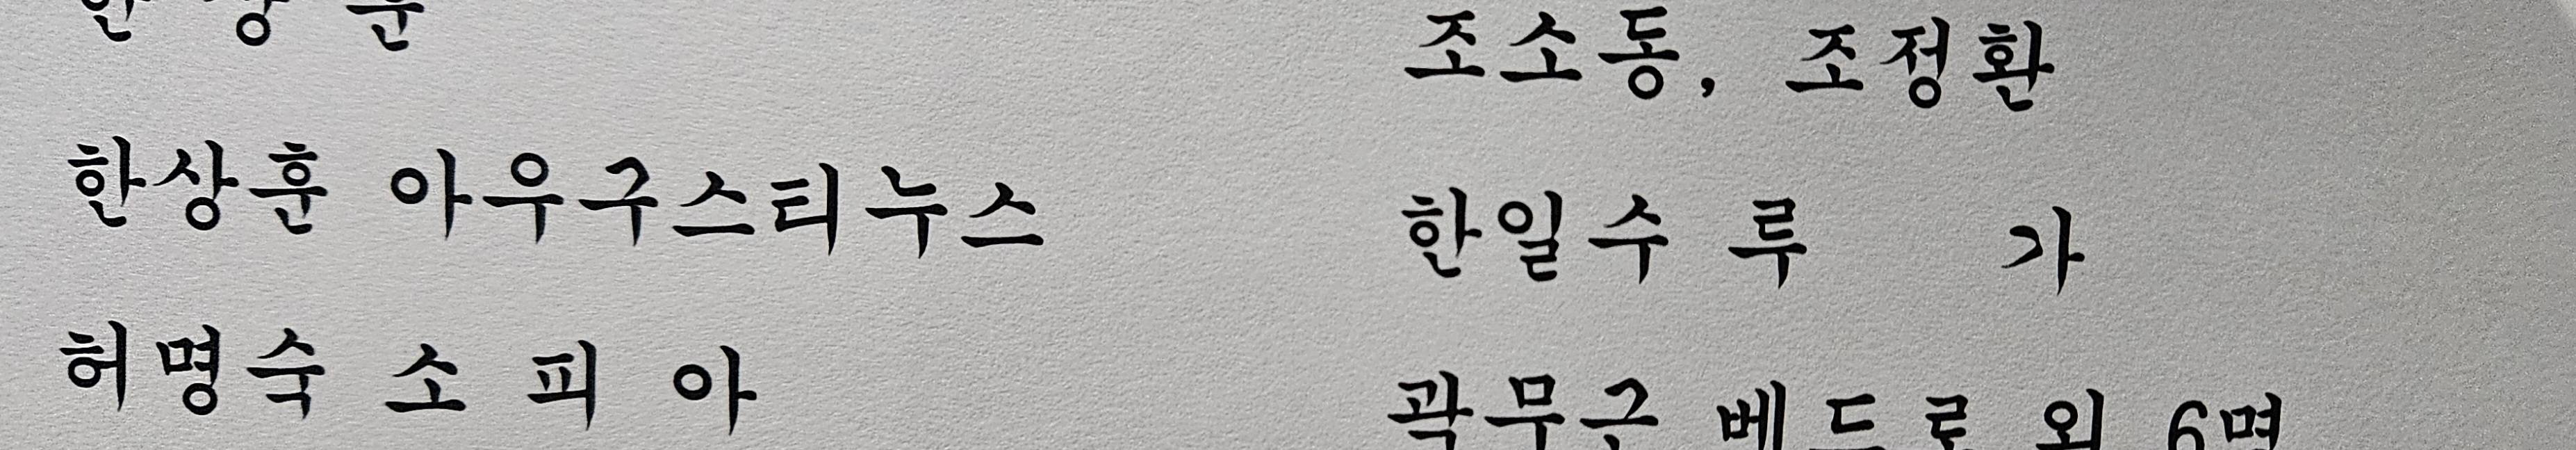 한 상 훈
한상훈 아우구스티누스
허명숙 소 피 아
조소동, 조정환
한일수 루 가
곽무근 베드로 외 6명